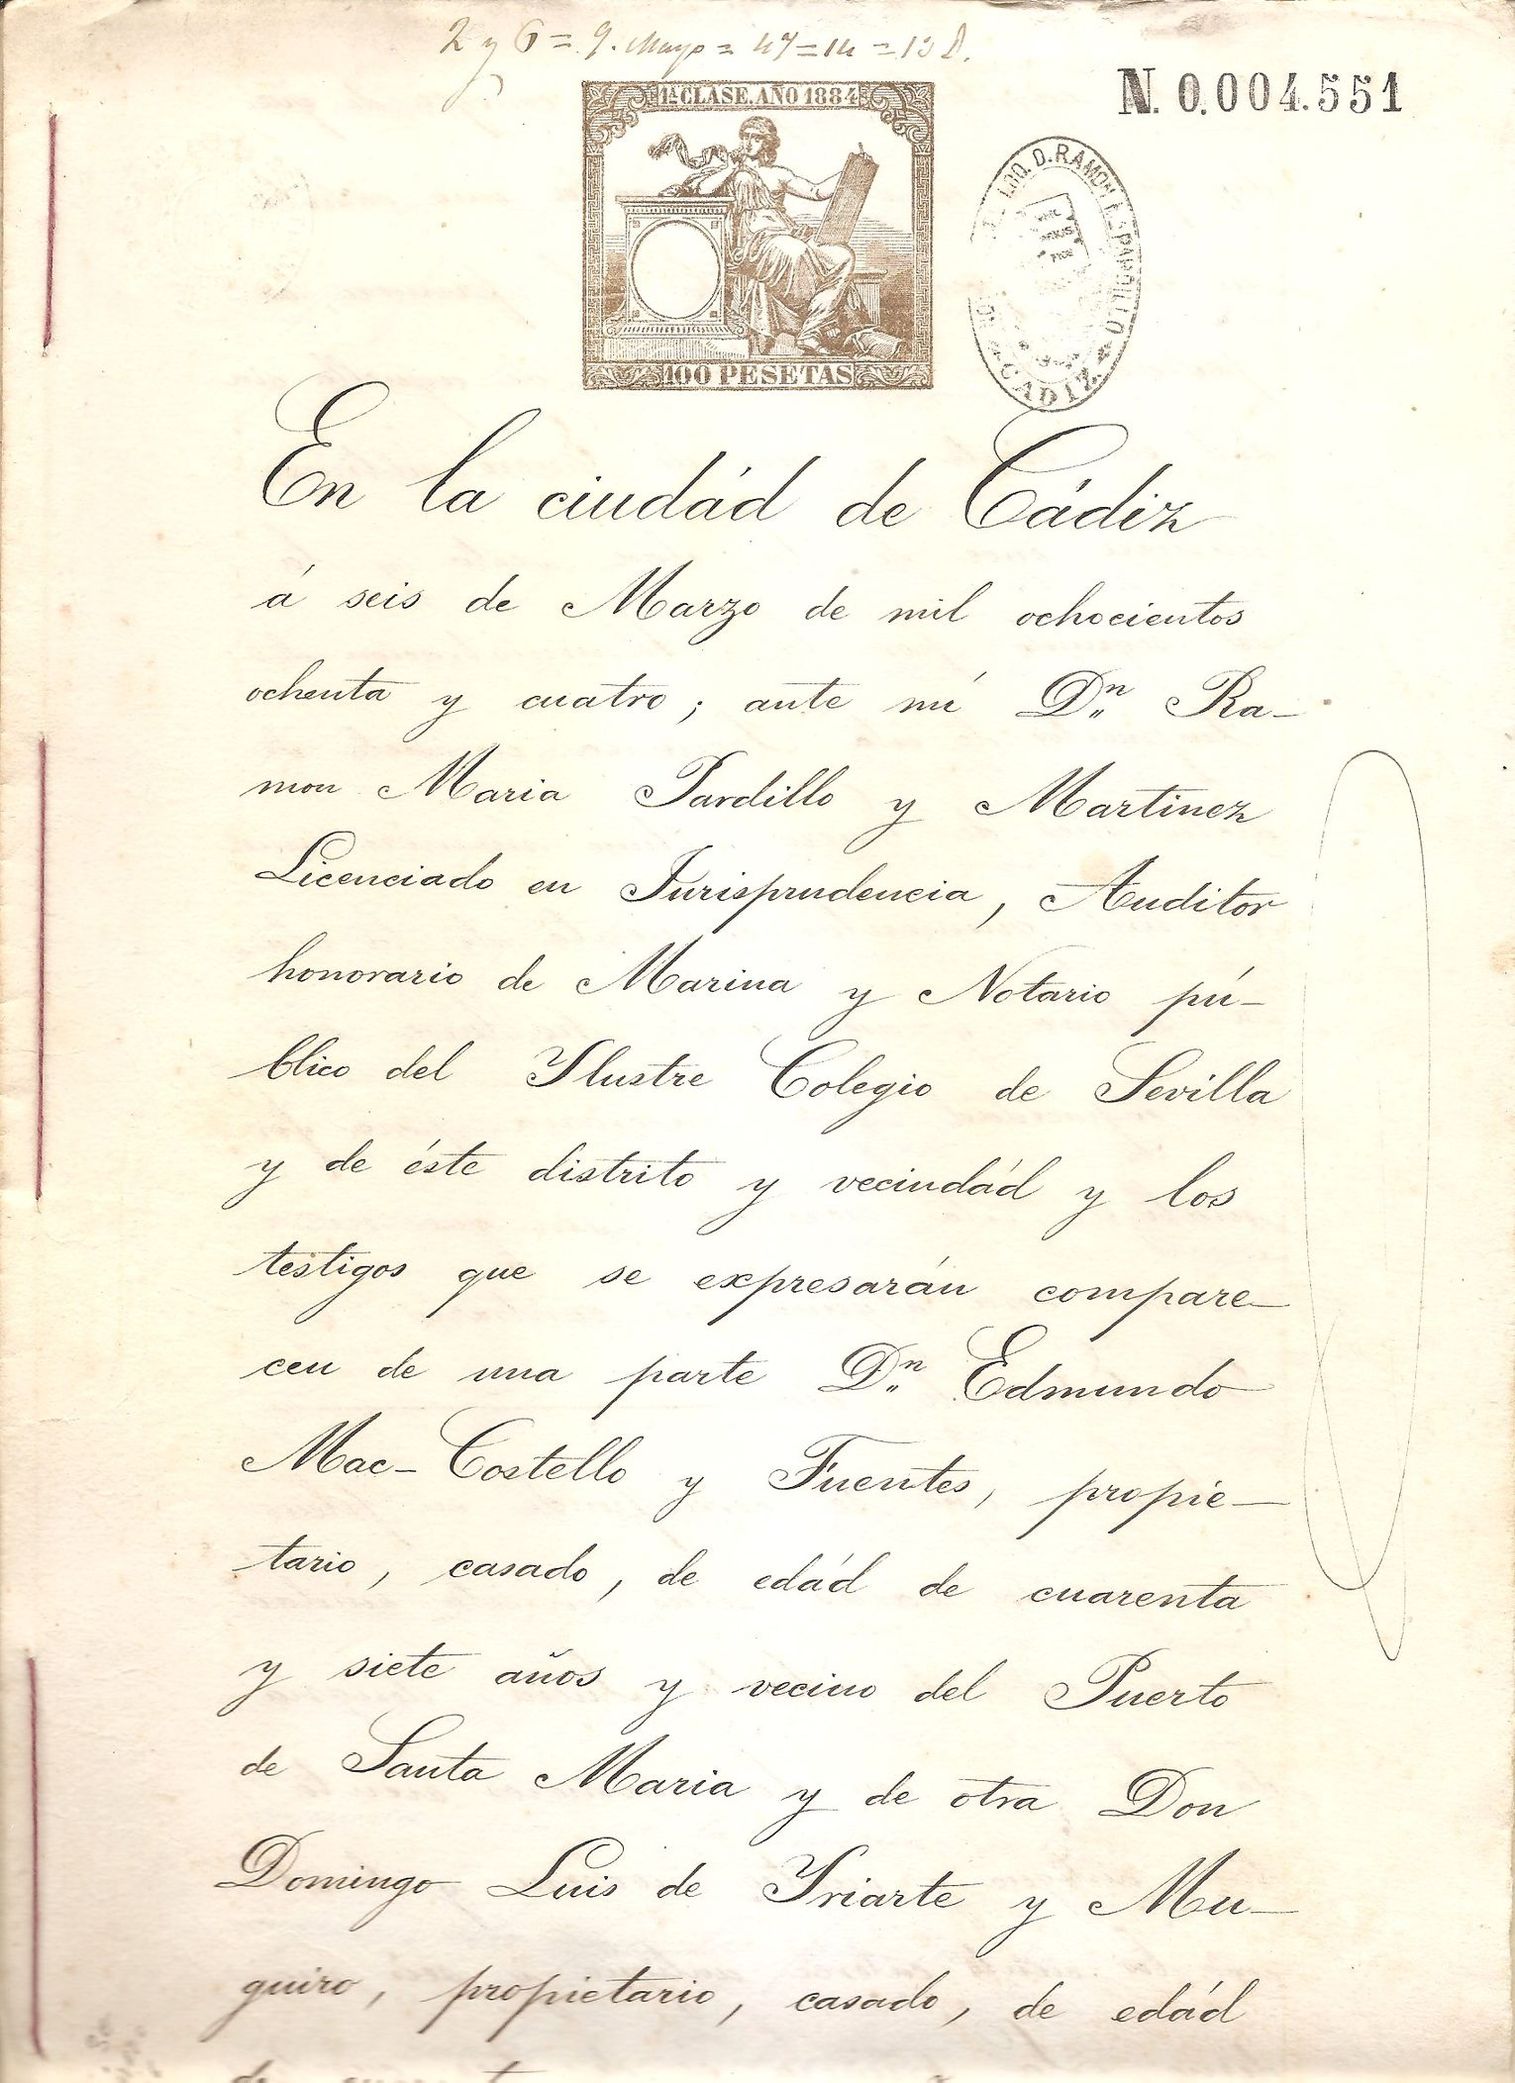 2 y 6 = 9. Mayo = 47 = 14 =
1ª CLASE. AÑO 1884
N. 0.004.551
LDO. D. RAMON Mª PARDILLO
CADIZ
100 PESETAS
En la ciudád de Cádiz
á seis de Marzo de mil ochocientos
ochenta y cuatro; ante mí Dn. Ra-
mon Maria Pardillo y Martinez
Licenciado en Jurisprudencia, Auditor
honorario de Marina y Notario pú-
blico del Ylustre Colegio de Sevilla
y de éste distrito y vecindád y los
testigos que se expresarán compare-
cen de una parte Dn. Edmundo
Mac-Costello y Fuentes, propie-
tario, casado, de edád de cuarenta
y siete años y vecino del Puerto
de Santa Maria y de otra Don
Domingo Luis de Yriarte y Mu-
guiro, propietario, casado, de edád